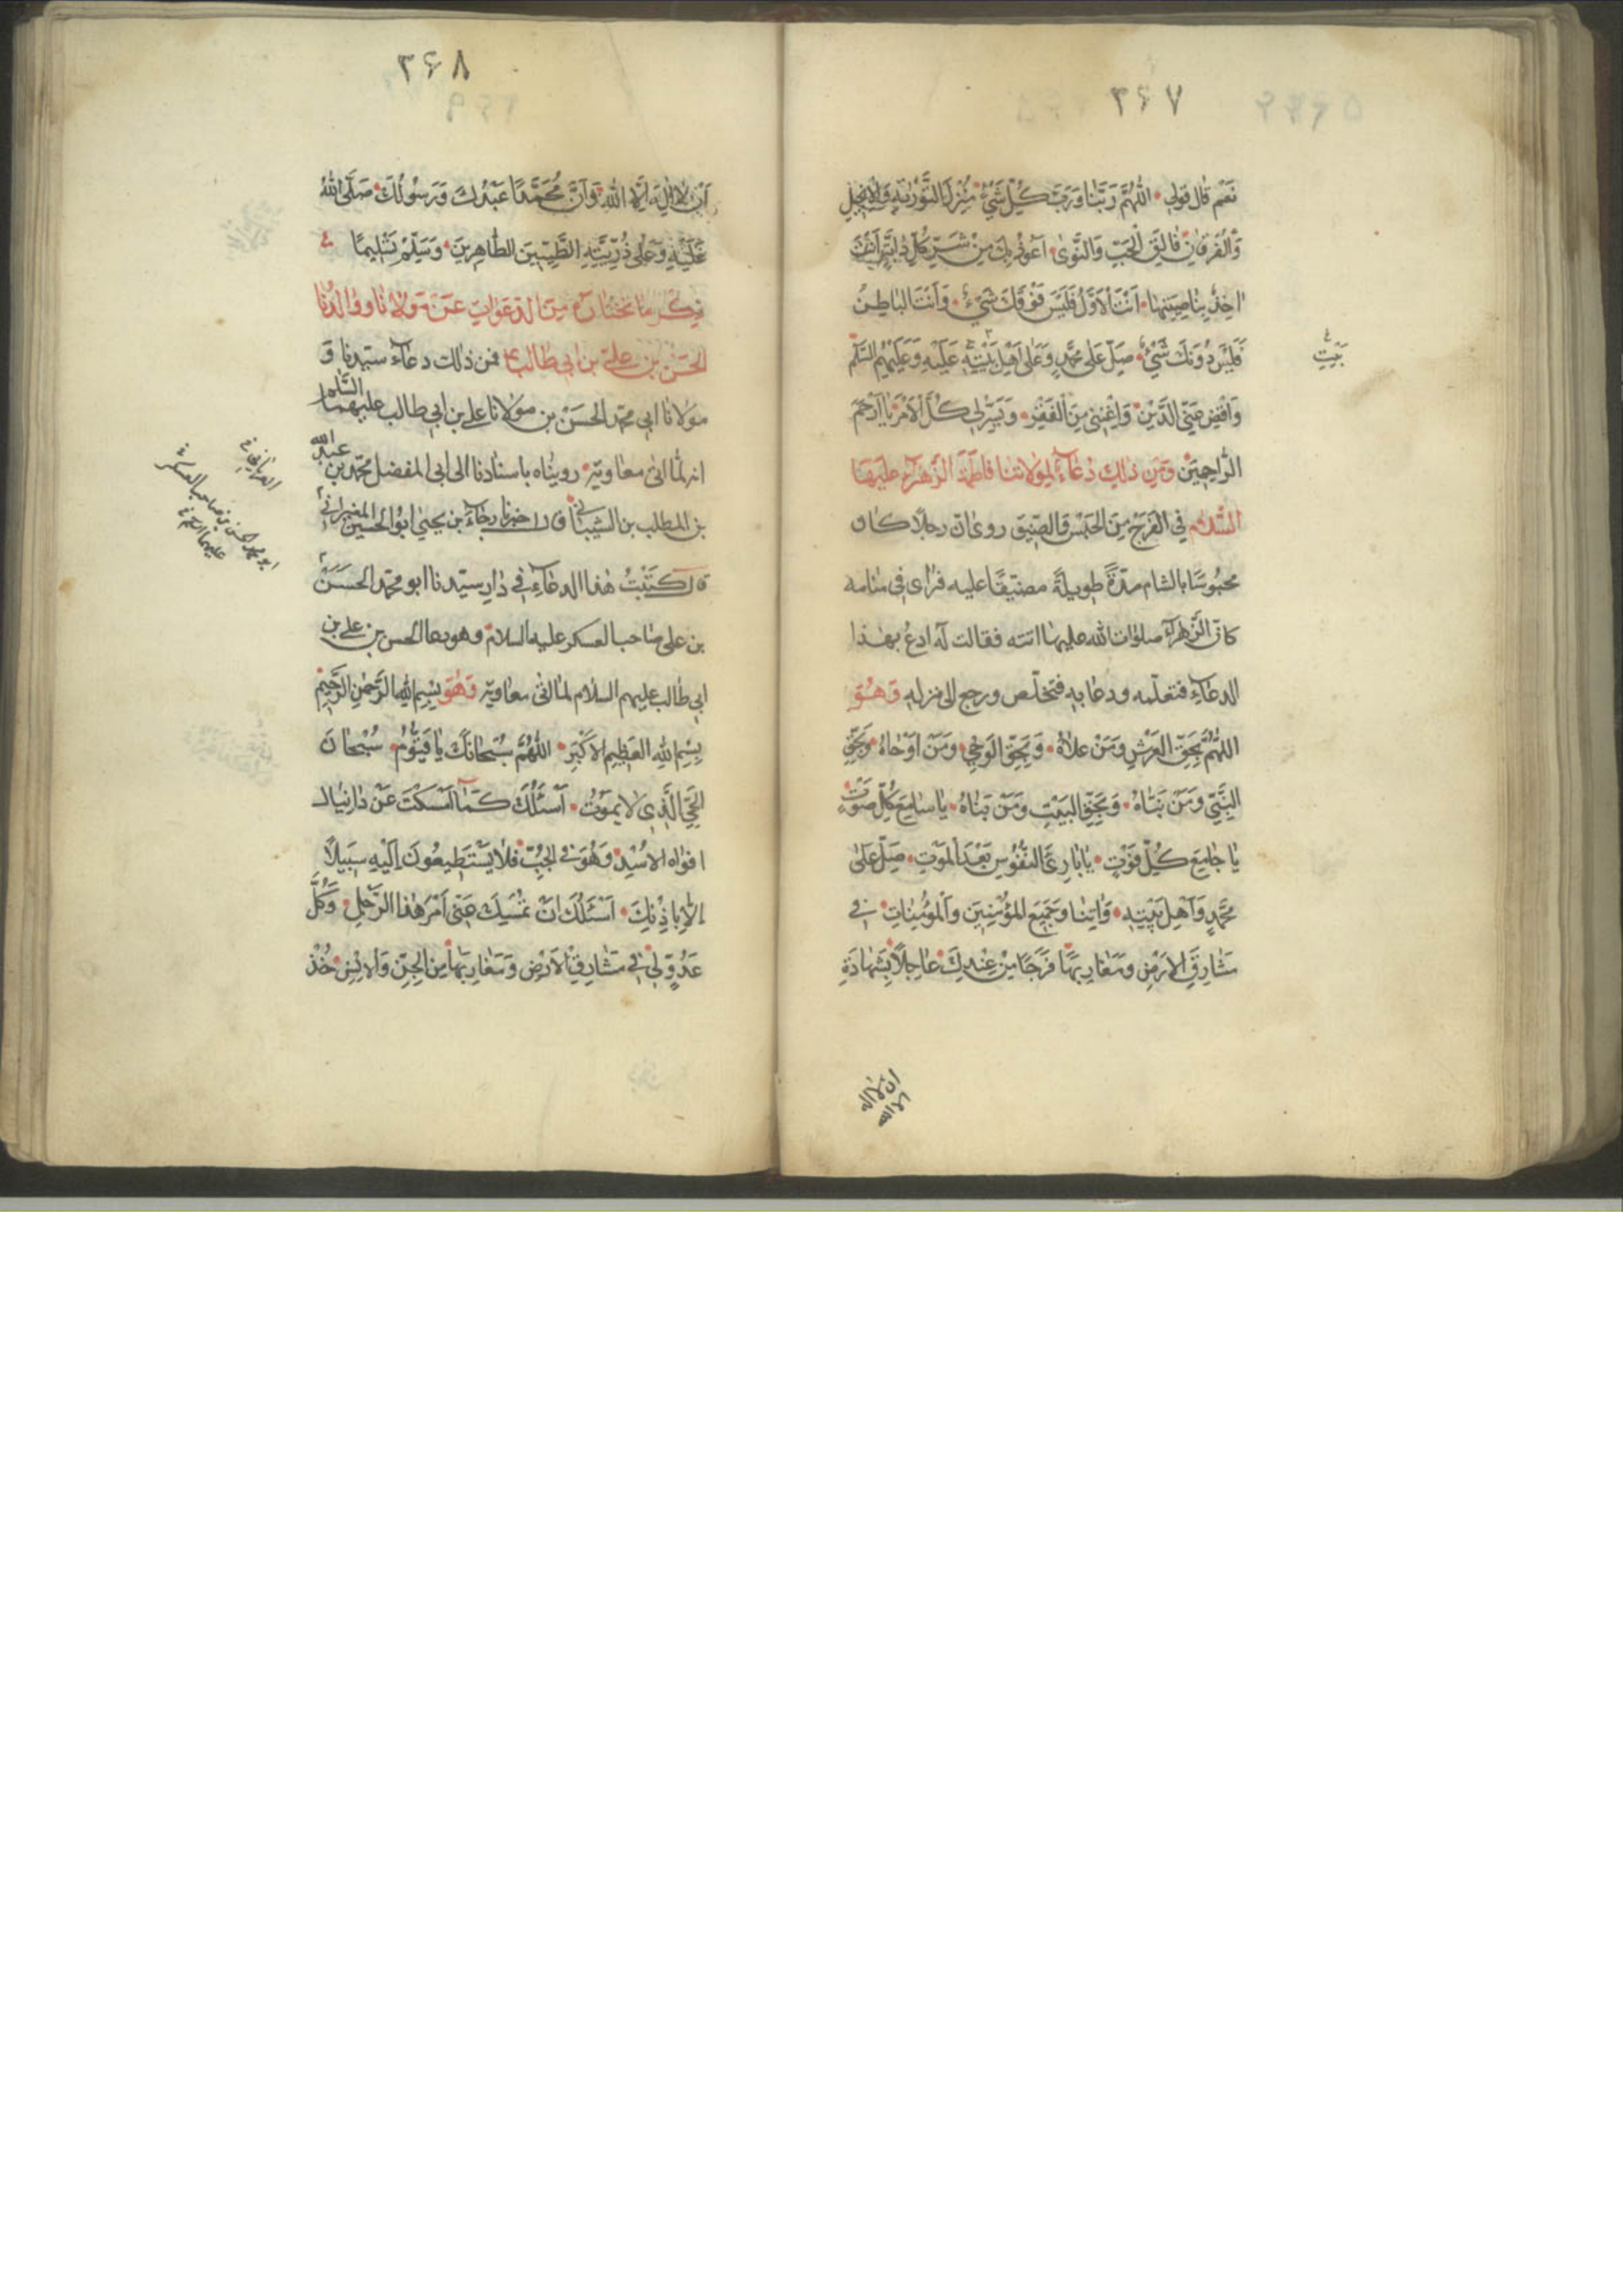 ۲۶۷
نَعَم قال قولى اللّٰهُمَّ رَبَّنا وَرَبَّ كُلِّ شَيْءٍ مُنْزِلَ التَّوْرٰيةِ وَالْاِنْجِيلِ
وَالْفُرْقانِ فالِقَ الْحَبِّ وَالنَّوىٰ اَعُوذُ بِكَ مِنْ شَرِّ كُلِّ دابَّةٍ اَنْتَ
اخِذٌ بِناصِيَتِها اَنْتَ الْاَوَّلُ فَلَيْسَ فَوْقَكَ شَيْءٌ وَاَنْتَ الْباطِنُ
فَلَيْسَ دُونَكَ شَيْءٌ صَلِّ عَلى مُحَمَّدٍ وَعَلى اَهْلِ بَيْتِهِ عَلَيْهِ وَعَلَيْهِمُ السَّلٰم
بَيْتِ
وَاقْضِ عَنِّي الدَّيْنَ وَاَغْنِنى مِنَ الْفَقْرِ وَيَسِّرْ لى كُلَّ الْاَمْرِ يا اَرْحَمَ
الرّاحِمِينَ وَمِن ذٰلِكَ دُعاءٌ لِمَولاتنا فاطِمَةَ الزَّهْراءِ عليها
السَّلام في الْفَرَجِ مِنَ الْحَبْسِ وَالضِّيقِ روى اَنّ رجلًا كان
محبُوسًا بالشام مدّةً طويلةً مضيّقًا عليه فراى فى منامه
كانّ الزّهراء صلوات الله عليها اتته فقالت له ادعُ بهذا
الدعاءِ فتعلّمه ودعا به فتخلّص ورجع الى منزله وَهُوَ
اللّهُمَّ بِحَقِّ الْعَرْشِ وَمَنْ عَلاهُ وَبِحَقِّ الْوَحْيِ وَمَنْ اَوْحاهُ وَبِحَقِّ
النَّبِيِّ وَمَنْ نَبَّاهُ وَبِحَقِّ الْبَيْتِ وَمَنْ بَناهُ يا سامِعَ كُلِّ صَوْتٍ
يا جامِعَ كُلِّ فَوْتٍ يا بارِئَ النُّفُوسِ بَعْدَ الْمَوْتِ صَلِّ عَلىٰ
مُحَمَّدٍ وَاَهْلِ بَيْتِهِ وَاٰتِنا وَجَمِيعَ الْمُؤْمِنِينَ وَالْمُؤْمِناتِ في
مَشارِقِ الْاَرْضِ وَمَغارِبِها فَرَجًا مِنْ عِنْدِكَ عاجِلًا بِشَهادَةِ
ان لا اله
الا الله
۲۶۸
اَنْ لا اِلٰهَ اِلَّا اللهُ وَاَنَّ مُحَمَّدًا عَبْدُكَ وَرَسُولُكَ صَلَّى اللهُ
عَلَيْهِ وَعَلى ذُرِّيَّتِهِ الطَّيِّبِينَ الطّاهِرِينَ وَسَلَّمَ تَسْلِيمًا
ذِكْر ما نختاره مِنَ الدَعَوَاتِ عَنْ مَوْلانا ووالِدُنا
الحَسَن بن علىّ بن ابى طالب فمن ذلك دعاء سيّدنا وَ
مولانا ابى محمّد الحسَنْ بن مولانا على بن ابى طالب عليهما السّلام
انه لمّا اتى معاوية رويناه باسنادنا الى ابى المفضل محمّد بن عبد الله
بن المطلب بن الشيبانى قال اخبرنا رجاءُ بن يحيى ابوُ الحسين
قال كتَبْتُ هذا الدعاءِ في دارِ سيّدنا ابو محمّد الحسَنَ
بن على صاحب العسكر عليه السلام وهو دعا الحسن بن على بن
ابى طالب عليهم السلام لما اتى معاوية وَهُوَ بِسْمِ اللهِ الرَّحْمٰنِ الرَّحِيمِ
بِسْمِ اللهِ الْعَظِيمِ الْاَكْبَرِ اللّٰهُمَّ سُبْحانَكَ يا قَيُّومُ سُبْحانَ
الْحَيِّ الَّذِى لا يَمُوتُ اَسْئَلُكَ كَما اَمْسَكْتَ عَنْ دانِيال
افواه الاُسْدِ وَهُوَ في الْجُبِّ فَلا يَسْتَطِيعُونَ اِلَيْهِ سَبِيلًا
اِلّا بِاِذْنِكَ اَسْئَلُكَ اَنْ تُمْسِكَ عَنِّى اَمْرَ هٰذَا الرَّجُلِ وَكُلَّ
عَدُوٍّ لى في مَشارِقِ الْاَرْضِ وَمَغارِبِها مِنَ الْجِنِّ وَالْاِنْسِ خُذْ